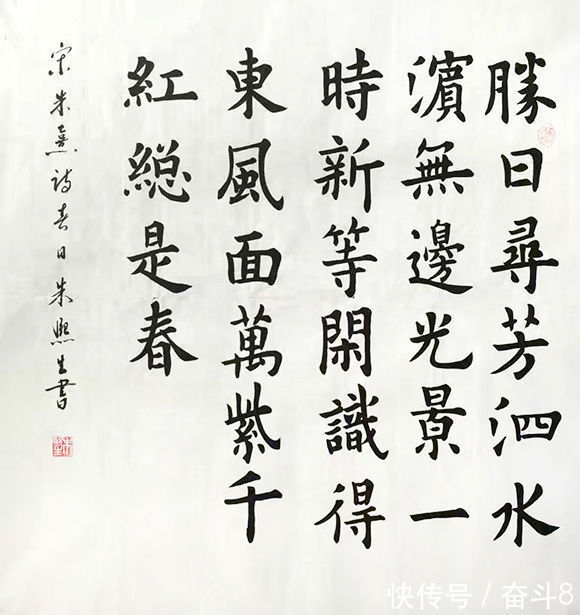 勝日尋芳泗水
濵無邊光景一
時新等閑識得
東風面萬紫千
紅緫是春
宋朱熹詩春日朱熙生書
快传号 / 奋斗8